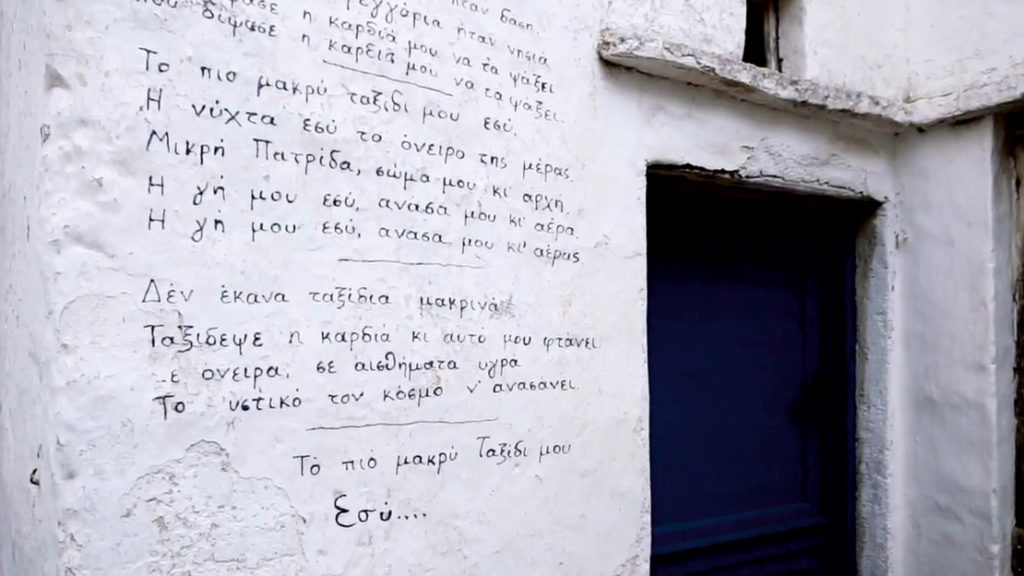 ήταν δάση
η καρδιά μου ήταν νησιά
δίψασε η καρδιά μου να τα ψάξει
να τα ψάξει.
Το πιο μακρύ ταξίδι μου εσύ.
Η νύχτα εσύ το όνειρο της μέρας.
Μικρή Πατρίδα, σώμα μου κι αρχή.
Η γή μου εσύ, ανάσα μου κι' αέρα.
Η γή μου εσύ, ανάσα μου κι' αέρας
Δέν έκανα ταξίδια μακρινά
Ταξίδεψε η καρδιά κι αυτό μου φτάνει.
όνειρα, σε αισθήματα υγρά
Το υστικό τον κόσμο ν' ανασάνει.
Τό πιό μακρύ Ταξίδι μου
Εσύ....